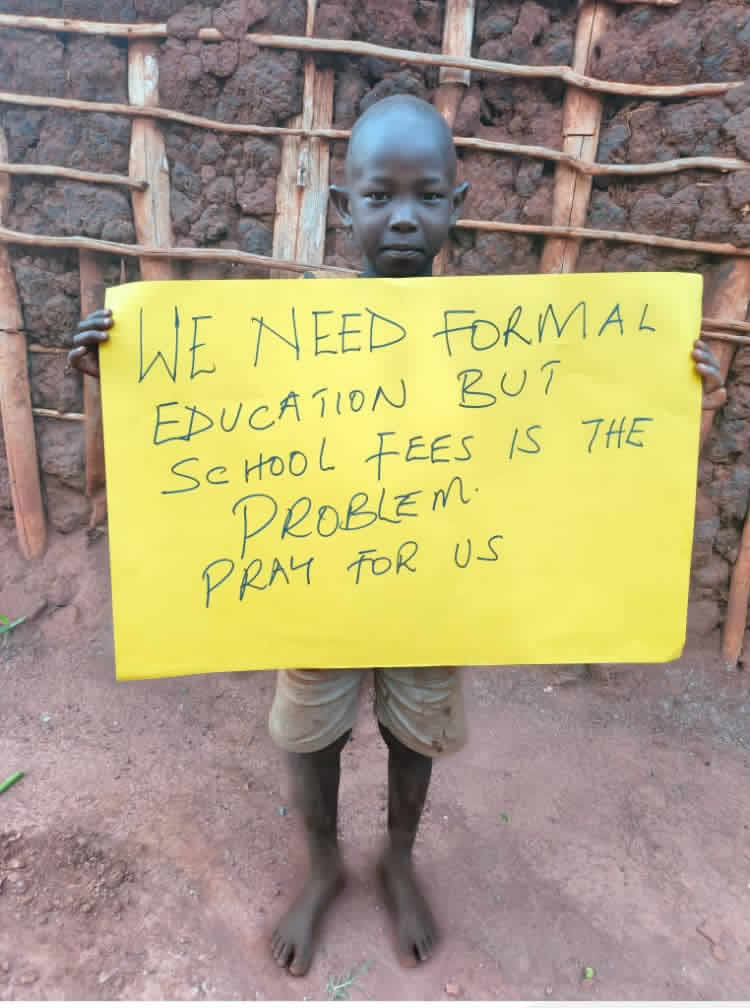 WE NEED FORMAL
EDUCATION BUT
SCHOOL FEES IS THE
PROBLEM.
PRAY FOR US